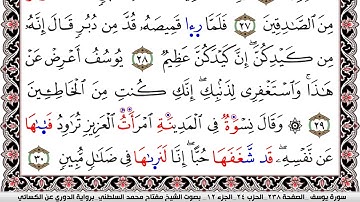 مِنَ ٱلصَّٰدِقِينَ ٢٧ فَلَمَّا رَءِا قَمِيصَهُۥ قُدَّ مِن دُبُرٖ قَالَ إِنَّهُۥ
مِن كَيۡدِكُنَّۖ إِنَّ كَيۡدَكُنَّ عَظِيمٞ ٢٨ يُوسُفُ أَعۡرِضۡ عَنۡ
هَٰذَاۚ وَٱسۡتَغۡفِرِي لِذَنۢبِكِۖ إِنَّكِ كُنتِ مِنَ ٱلۡخَاطِـِٔينَ
٢٩ ۞ وَقَالَ نِسۡوَةٞ فِي ٱلۡمَدِينَةِ ٱمۡرَأَتُ ٱلۡعَزِيزِ تُرَٰوِدُ فَتَىٰهَا
عَن نَّفۡسِهِۦۖ قَد شَّغَفَهَا حُبًّاۖ إِنَّا لَنَرَىٰهَا فِي ضَلَٰلٖ مُّبِينٖ ٣٠
سورة يوسف . الصفحة ٢٣٨ . الحزب ٢٤ . الجزء ١٢ . بصوت الشيخ مفتاح محمد السلطني . برواية الدوري عن الكسائي